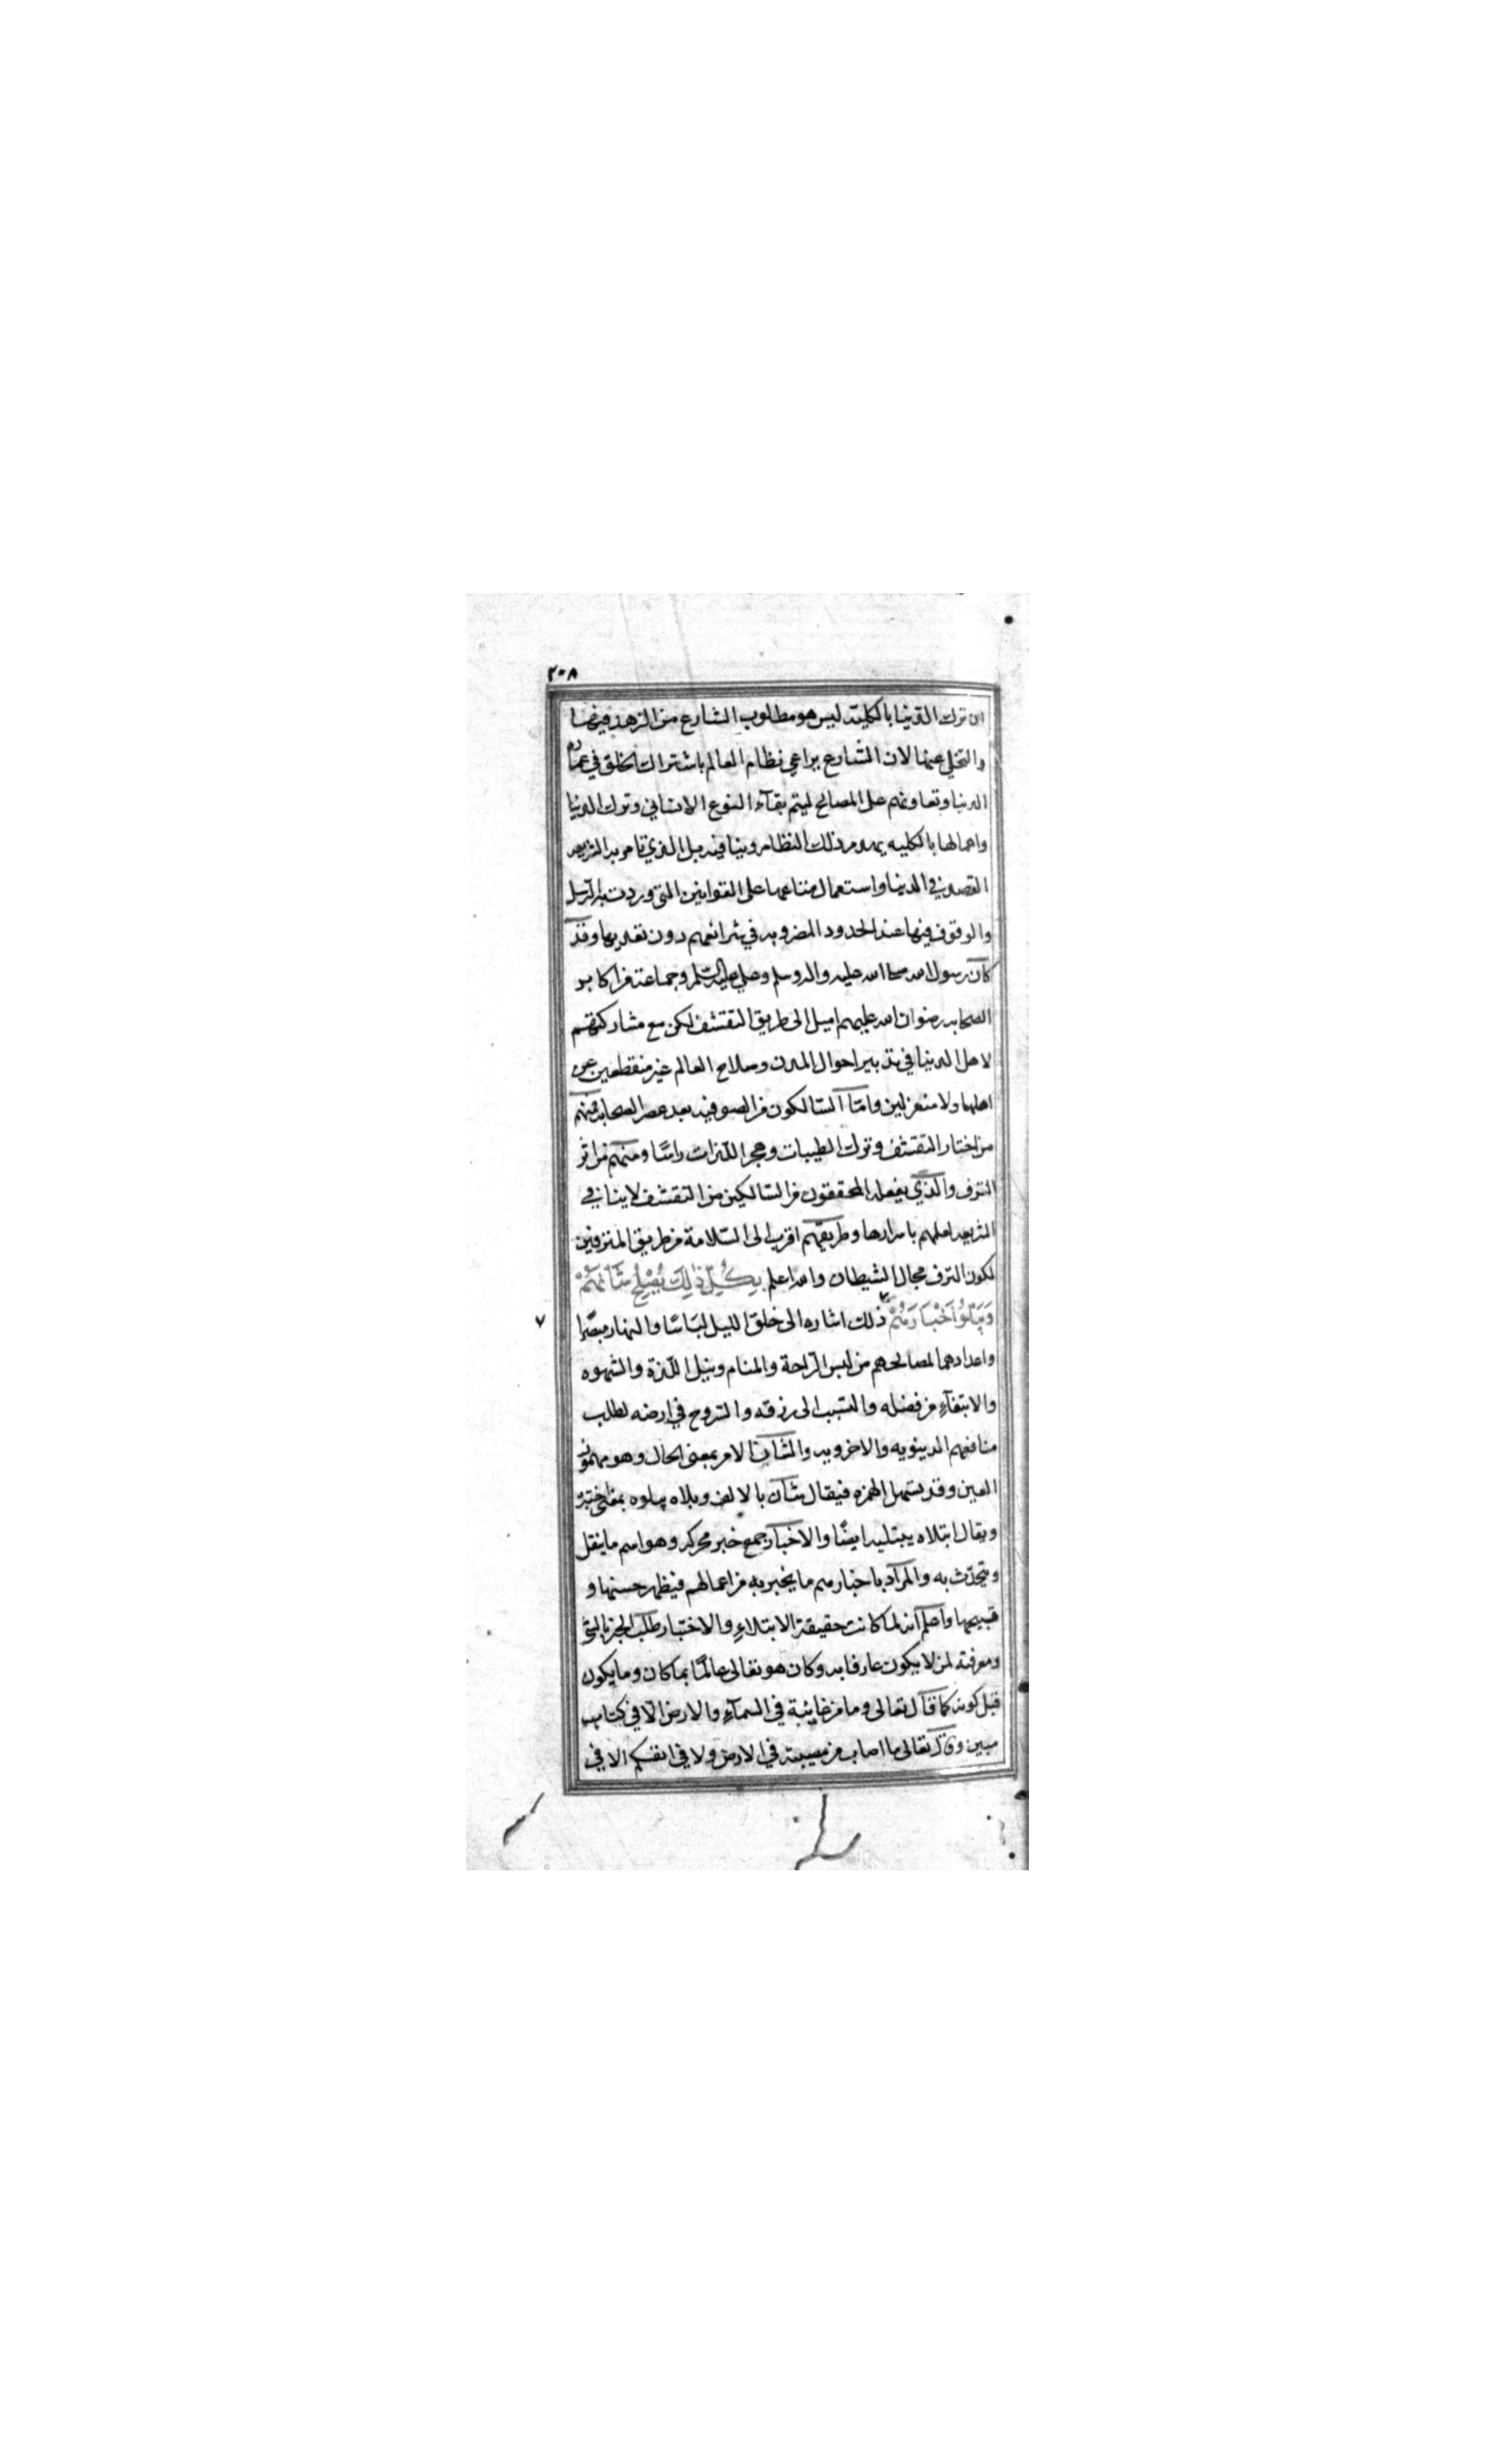 ٢٠٨
ان ترك الدنيا بالكلية ليس هو مطلوب الشارع من الزهد فيها
والتخلي عنها لان الشارع يراعي نظام العالم باشتراك الخلق في عماره
الدنيا وتعاونهم على المصالح ليتم بقآء النوع الانساني وترك الدنيا
واهمالها بالكليه يهدم ذلك النظام وينافيه بل الذي تامر به الشريعه
القصد في الدنيا واستعمال متاعها على القوانين التي وردت به الرسل
والوقوف فيها عند الحدود المضروبه في شرائعهم دون تعديها وقد
كان رسول الله صلى الله عليه واله وسلم وعلي عليه السلم وجماعة من اكابر
الصحابه رضوان الله عليهم اميل الى طريق التقشف لكن مع مشاركتهم
لاهل الدنيا في تدبير احوال المدن وصلاح العالم غير منقطعين عن
اهلها ولا منعزلين وامّا السالكون من الصوفيه بعد عصر الصحابه فمنهم
من اختار التقشف وترك الطيبات وهجر اللذات راسًا ومنهم من اثر
الترف والذي يفعله المحققون من السالكين من التقشف لا ينافي
الشريعه لعلمهم باسرارها وطريقهم اقرب الى السّلامة من طريق المترفين
لكون الترف مجال الشيطان والله اعلم بِكُلِّ ذٰلِكَ يُصْلِحُ شَأنَهُمْ
وَيَبْلُوَ اَخْبَارَهُمْ ذلك اشاره الى خلق الليل لباسًا والنهار مبصرًا
٧
واعدادهما لمصالحهم من لبس الرّاحة والمنام ونيل اللذة والشهوه
والابتغآءِ من فضله والتسبب الى رزقه والسروح في ارضه لطلب
منافعهم الدنيويه والاخرويه والشان الامر بمعنى الحال وهو مهموز
العين وقد تسهل الهمزه فيقال شان بالالف وبلاه يبلوه بمعنى اختبره
ويقال ابتلاه يبتليه ايضًا والاخبار جمع خبر محركه وهو اسم ما ينقل
ويتحدّث به والمراد باخبارهم ما يخبر به من اعمالهم فيظهر حسنها و
قبيحها واعلم انه لما كانت حقيقة الابتلاءِ والاختبار طلب الخبر بالشئ
ومعرفته لمن لا يكون عارفا به وكان هو تعالى عالمًا بما كان وما يكون
قبل كونه كما قال تعالى وما من غائبة في السمآءِ والارض الّا في كتاب
مبين وقال تعالى ما اصاب من مصيبة في الارض ولا في انفسكم الا في